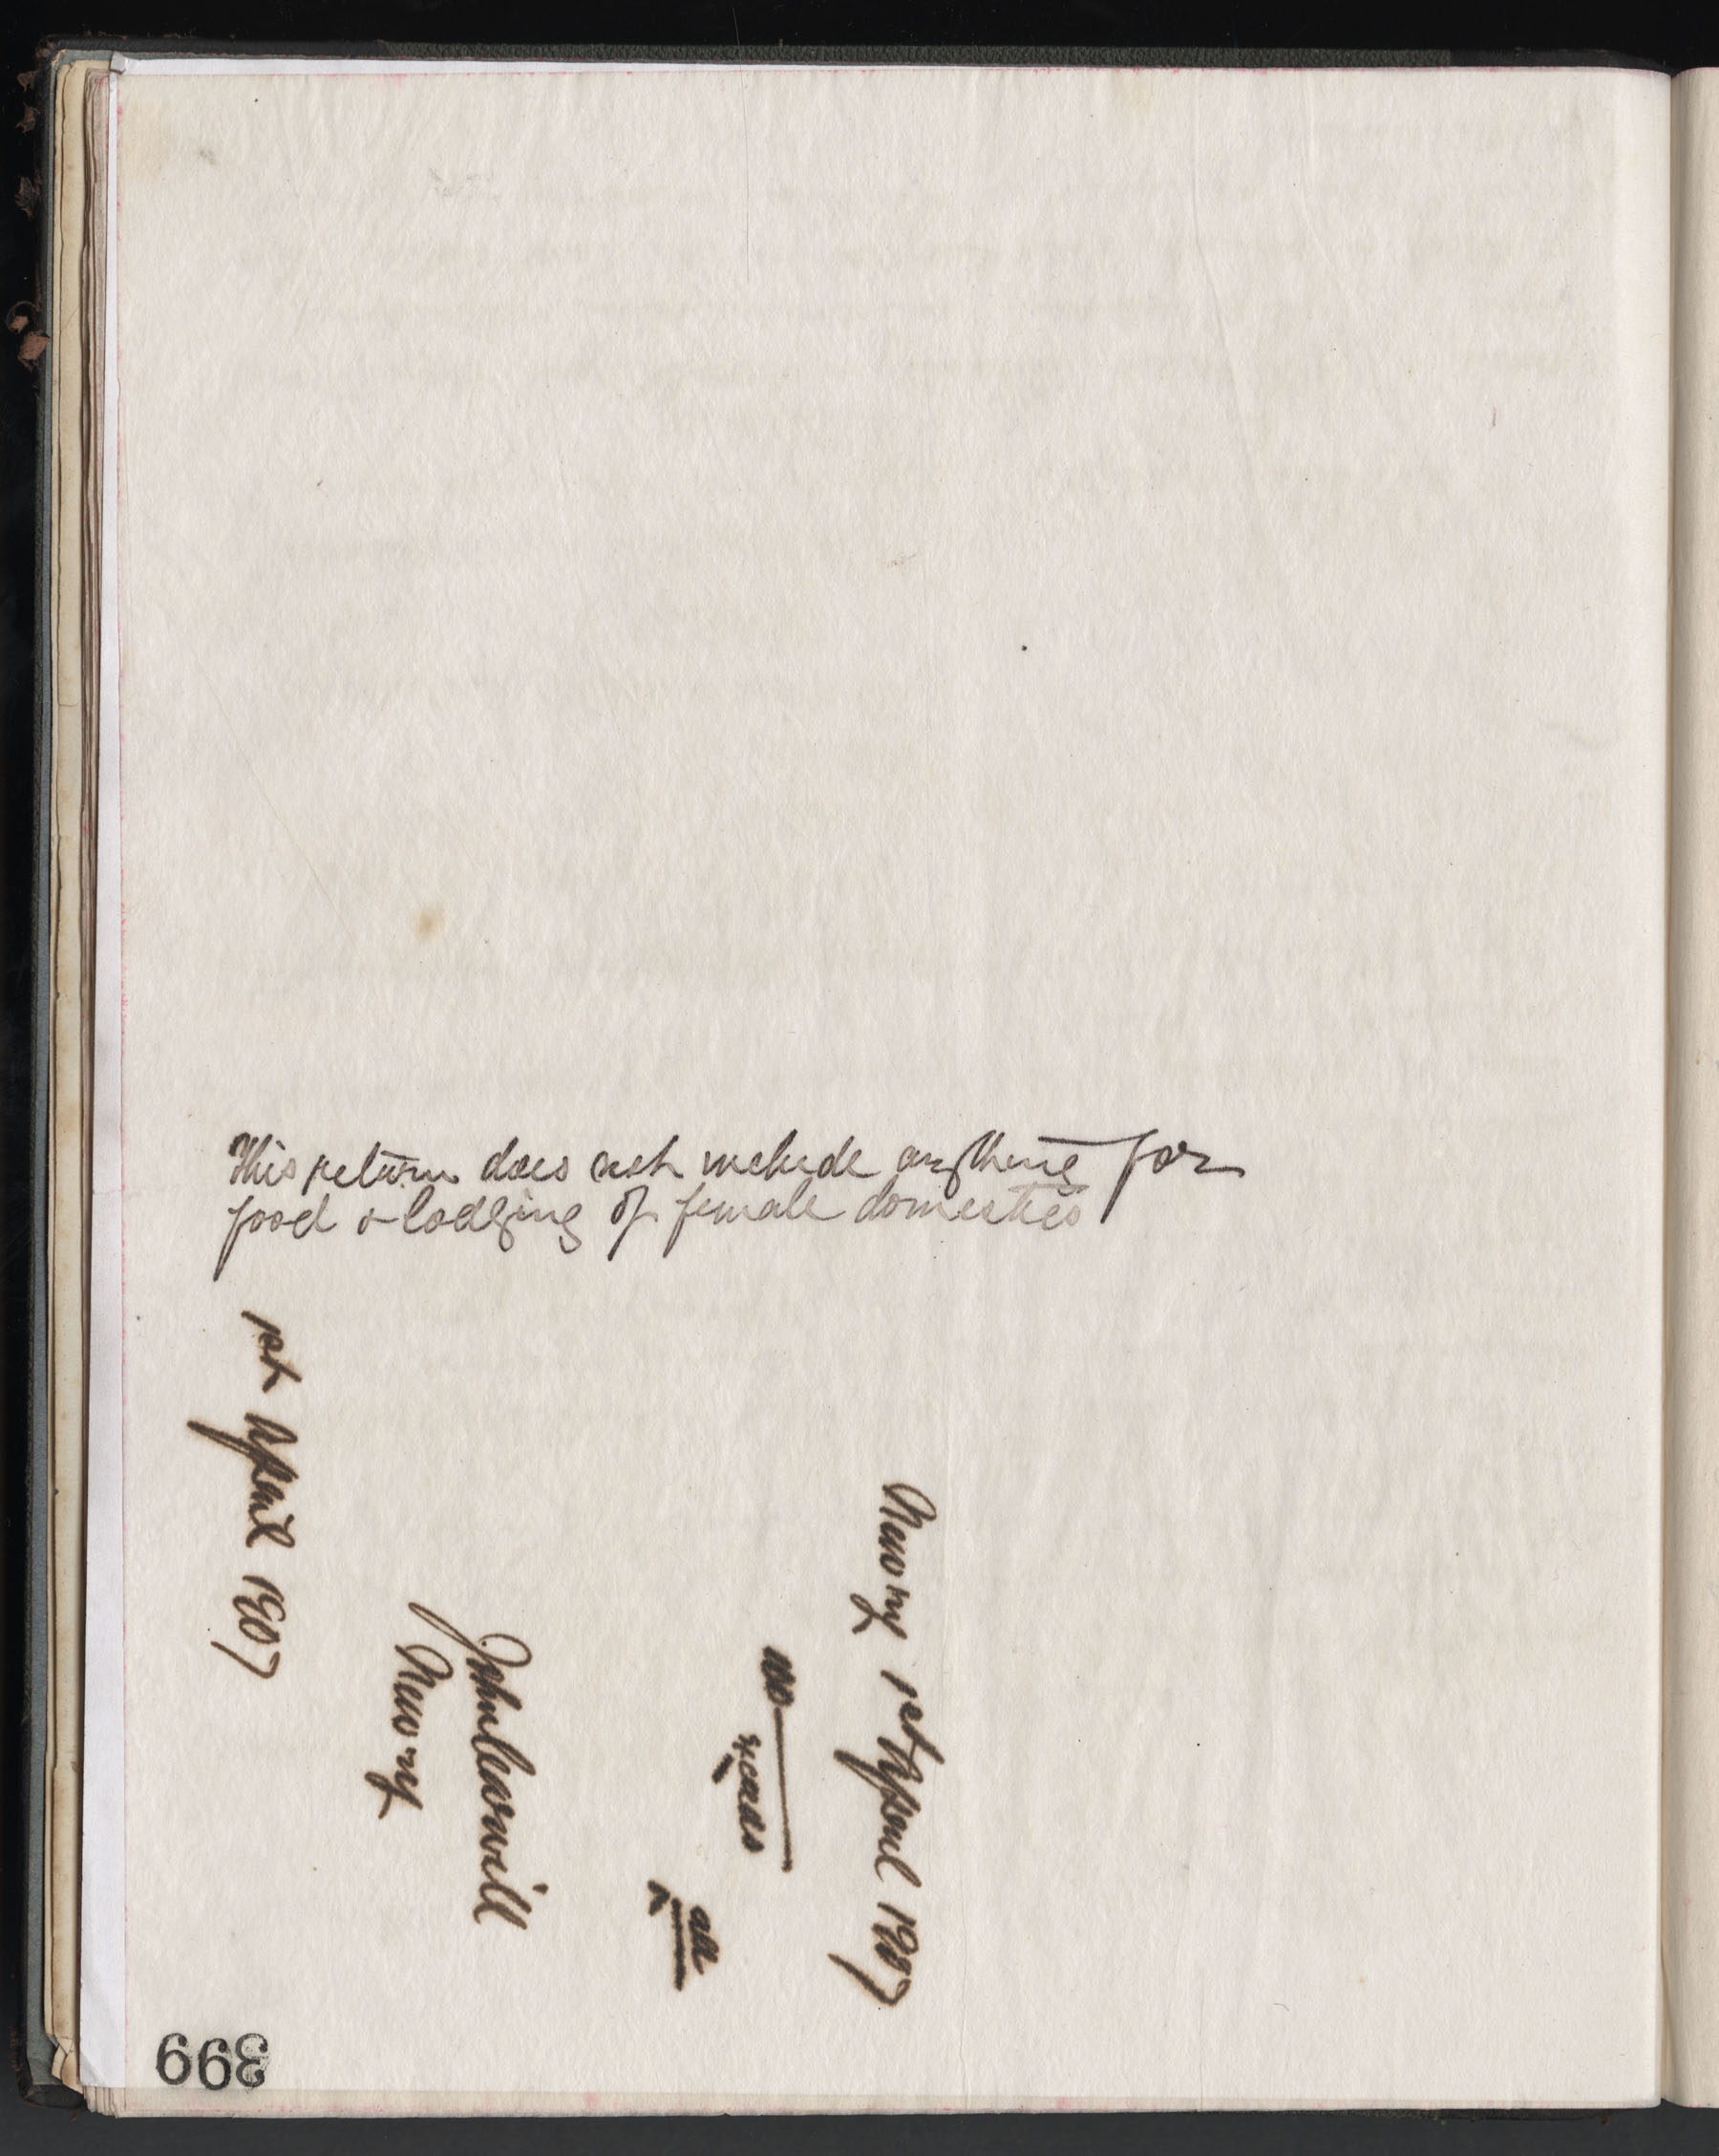 This return does not include anything for
food & lodging of female domestics
Newry 1st April 1907
no
all
John
Newry
1st April 1907
399